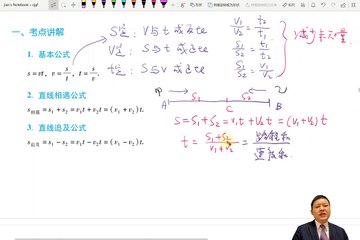 一、考点讲解
1. 基本公式
s=vt, v=s/t, t=s/v.
2. 直线相遇公式
s相遇=s₁+s₂=v₁t+v₂t=(v₁+v₂)t.
3. 直线追及公式
s追及=s₁-s₂=v₁t-v₂t=(v₁-v₂)t.
S定: V与t 成反比
V定: S与t 成正比
t定: S与V 成正比
V₁/V₂=t₂/t₁
S₁/S₂=t₁/t₂
S₁/S₂=V₁/V₂
甲 S₁ S₂ 乙
A C B
S=S₁+S₂=V₁t+V₂t=(V₁+V₂)t
t=(S₁+S₂)/(V₁+V₂)=路程和/速度和